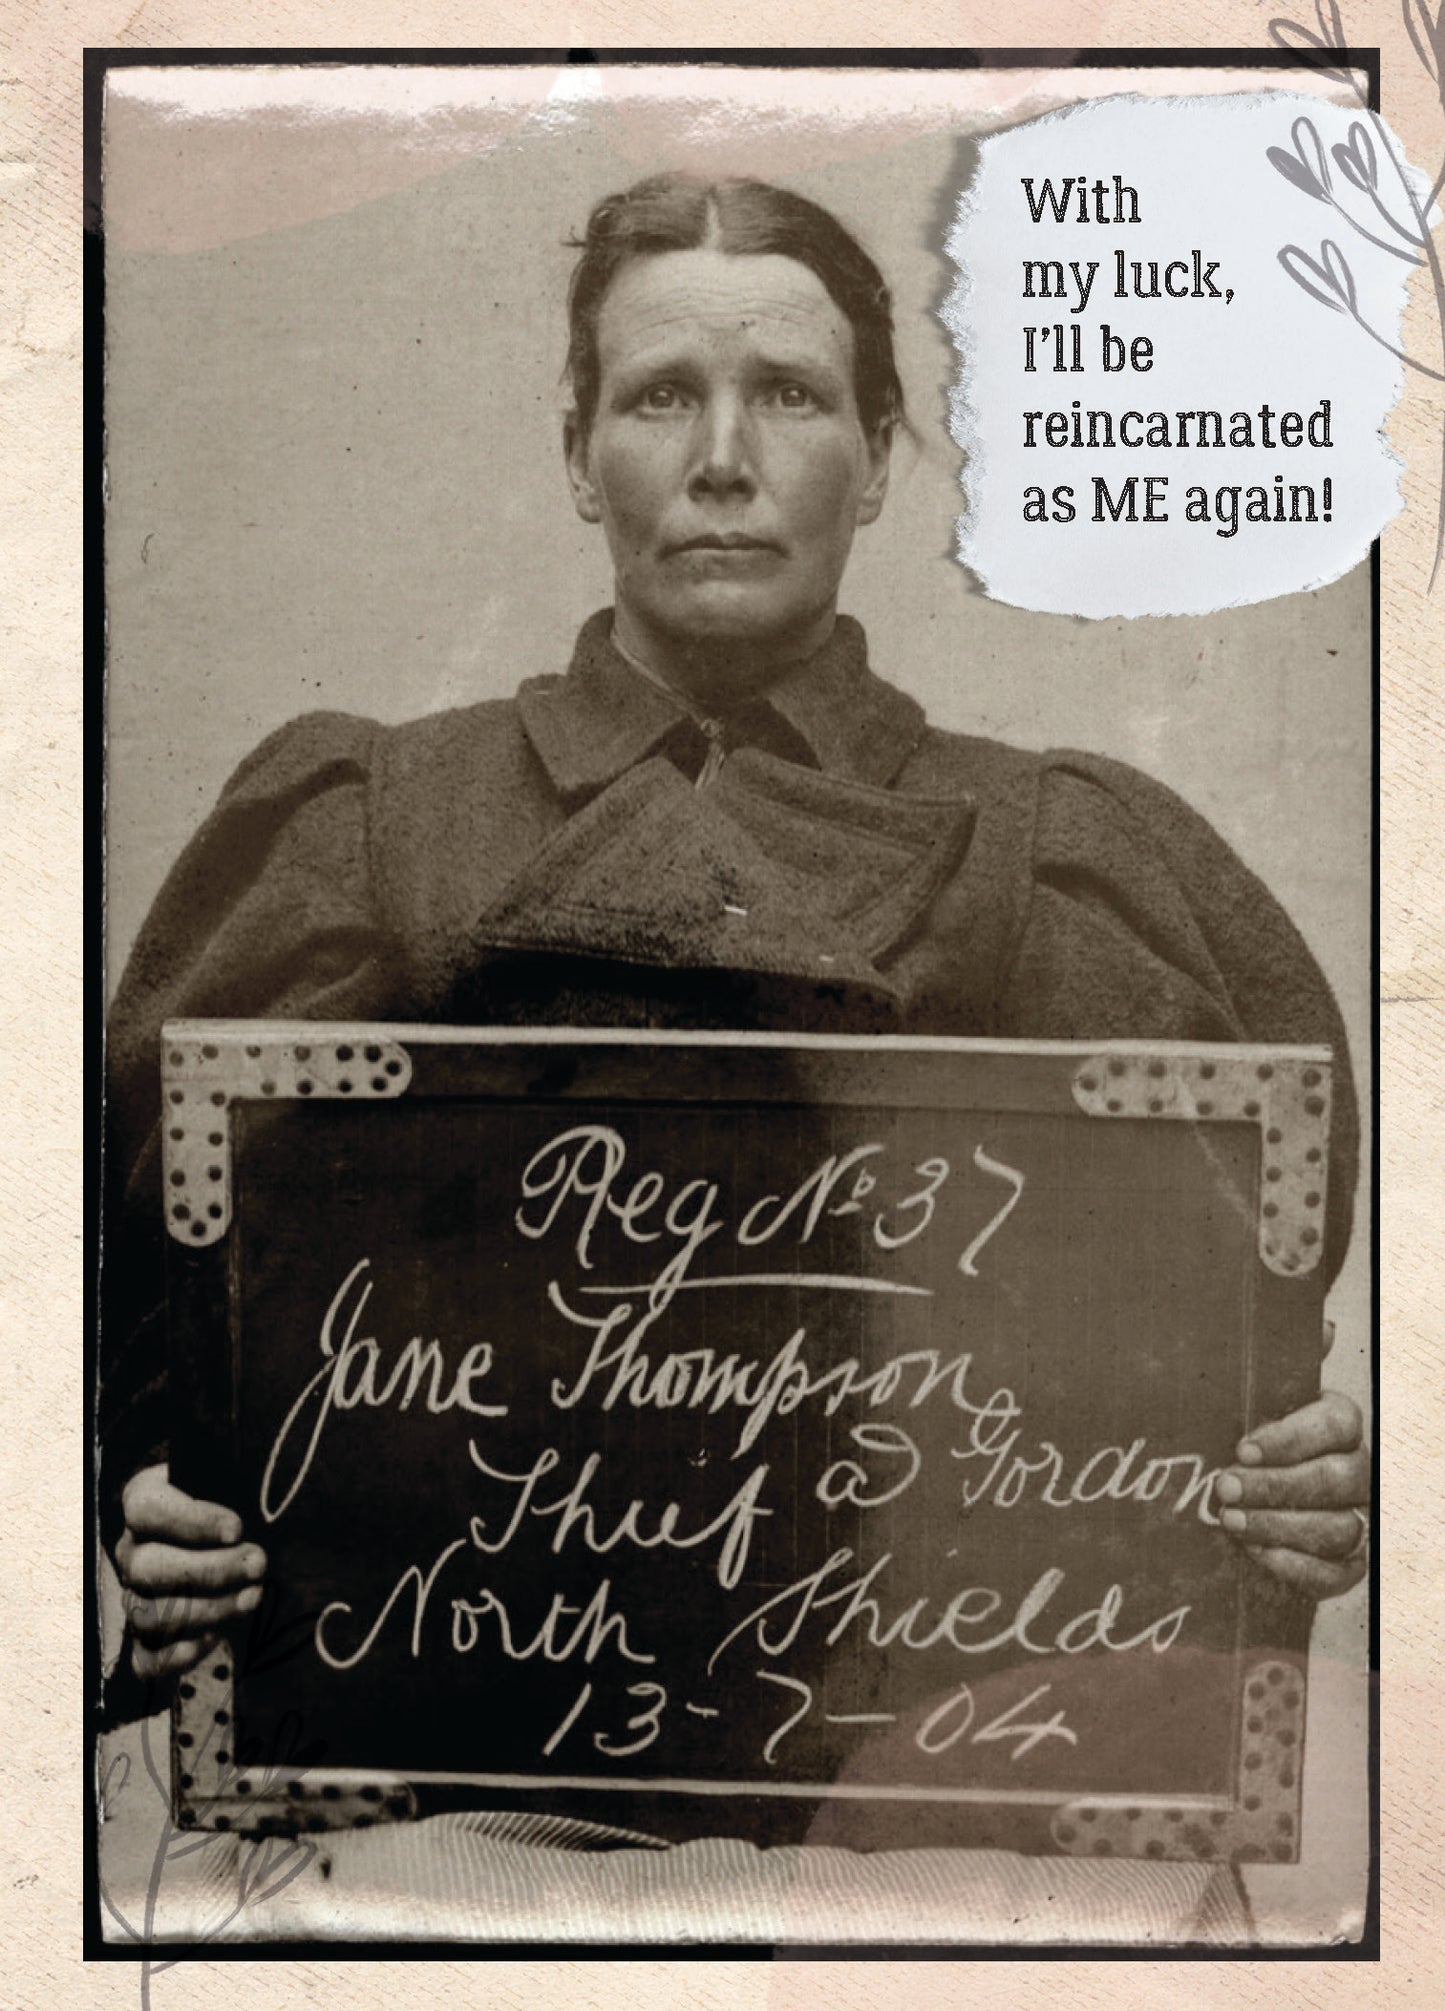 With
my luck,
I'll be
reincarnated
as ME again!
Reg Nº 37
Jane Thompson
Thief a Gordon
North Shields
13-7-04